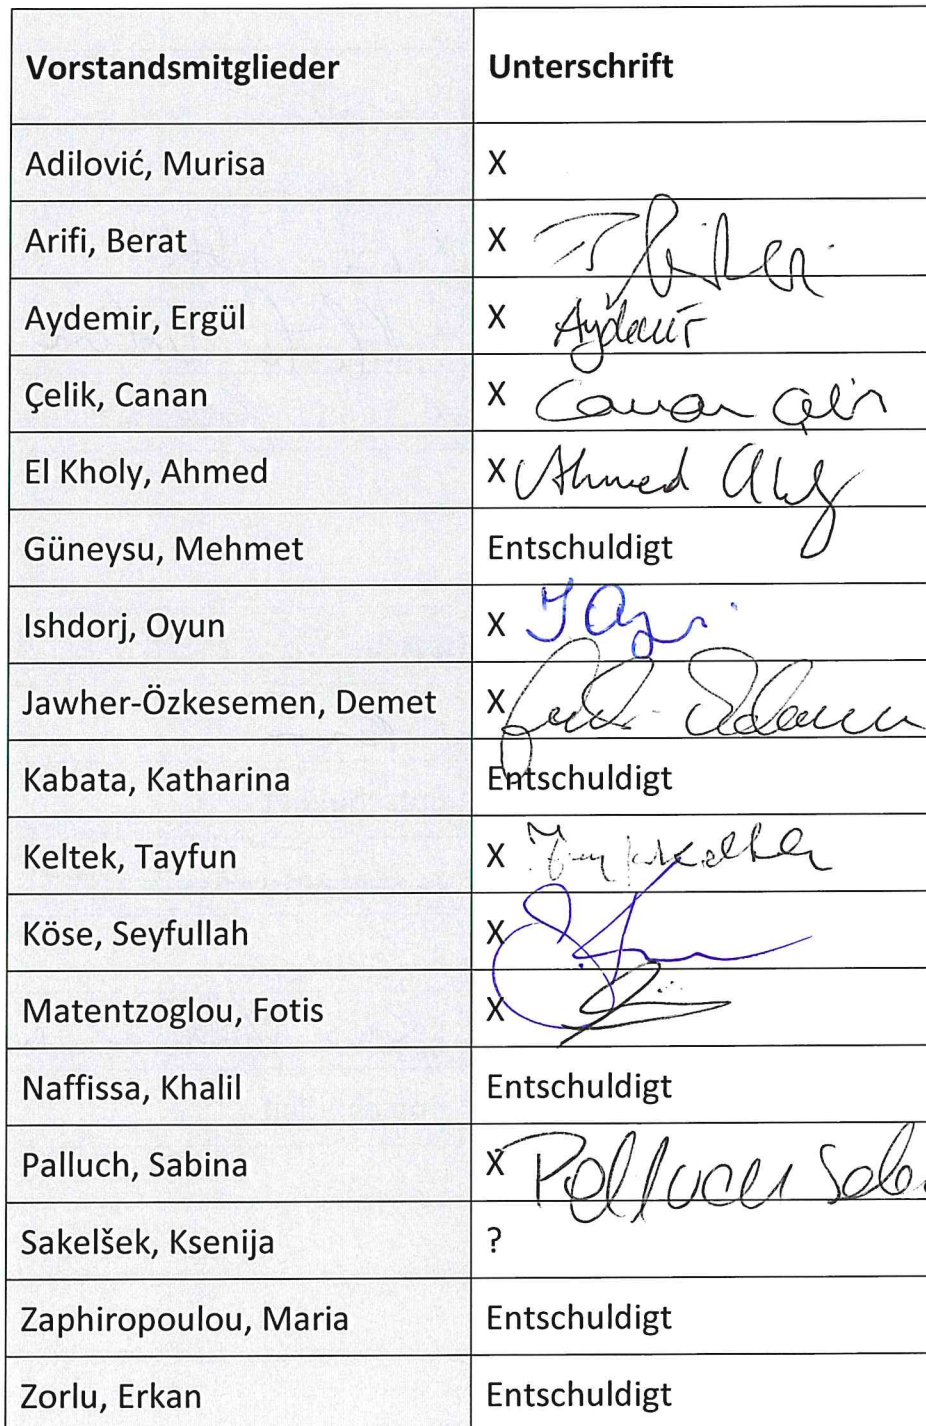 Vorstandsmitglieder Unterschrift
Adilović, Murisa X
Arifi, Berat X
Aydemir, Ergül X Aydemir
Çelik, Canan X Canan Çelik
El Kholy, Ahmed X Ahmed
Güneysu, Mehmet Entschuldigt
Ishdorj, Oyun X
Jawher-Özkesemen, Demet X
Kabata, Katharina Entschuldigt
Keltek, Tayfun X
Köse, Seyfullah X
Matentzoglou, Fotis X
Naffissa, Khalil Entschuldigt
Palluch, Sabina X
Sakelšek, Ksenija ?
Zaphiropoulou, Maria Entschuldigt
Zorlu, Erkan Entschuldigt